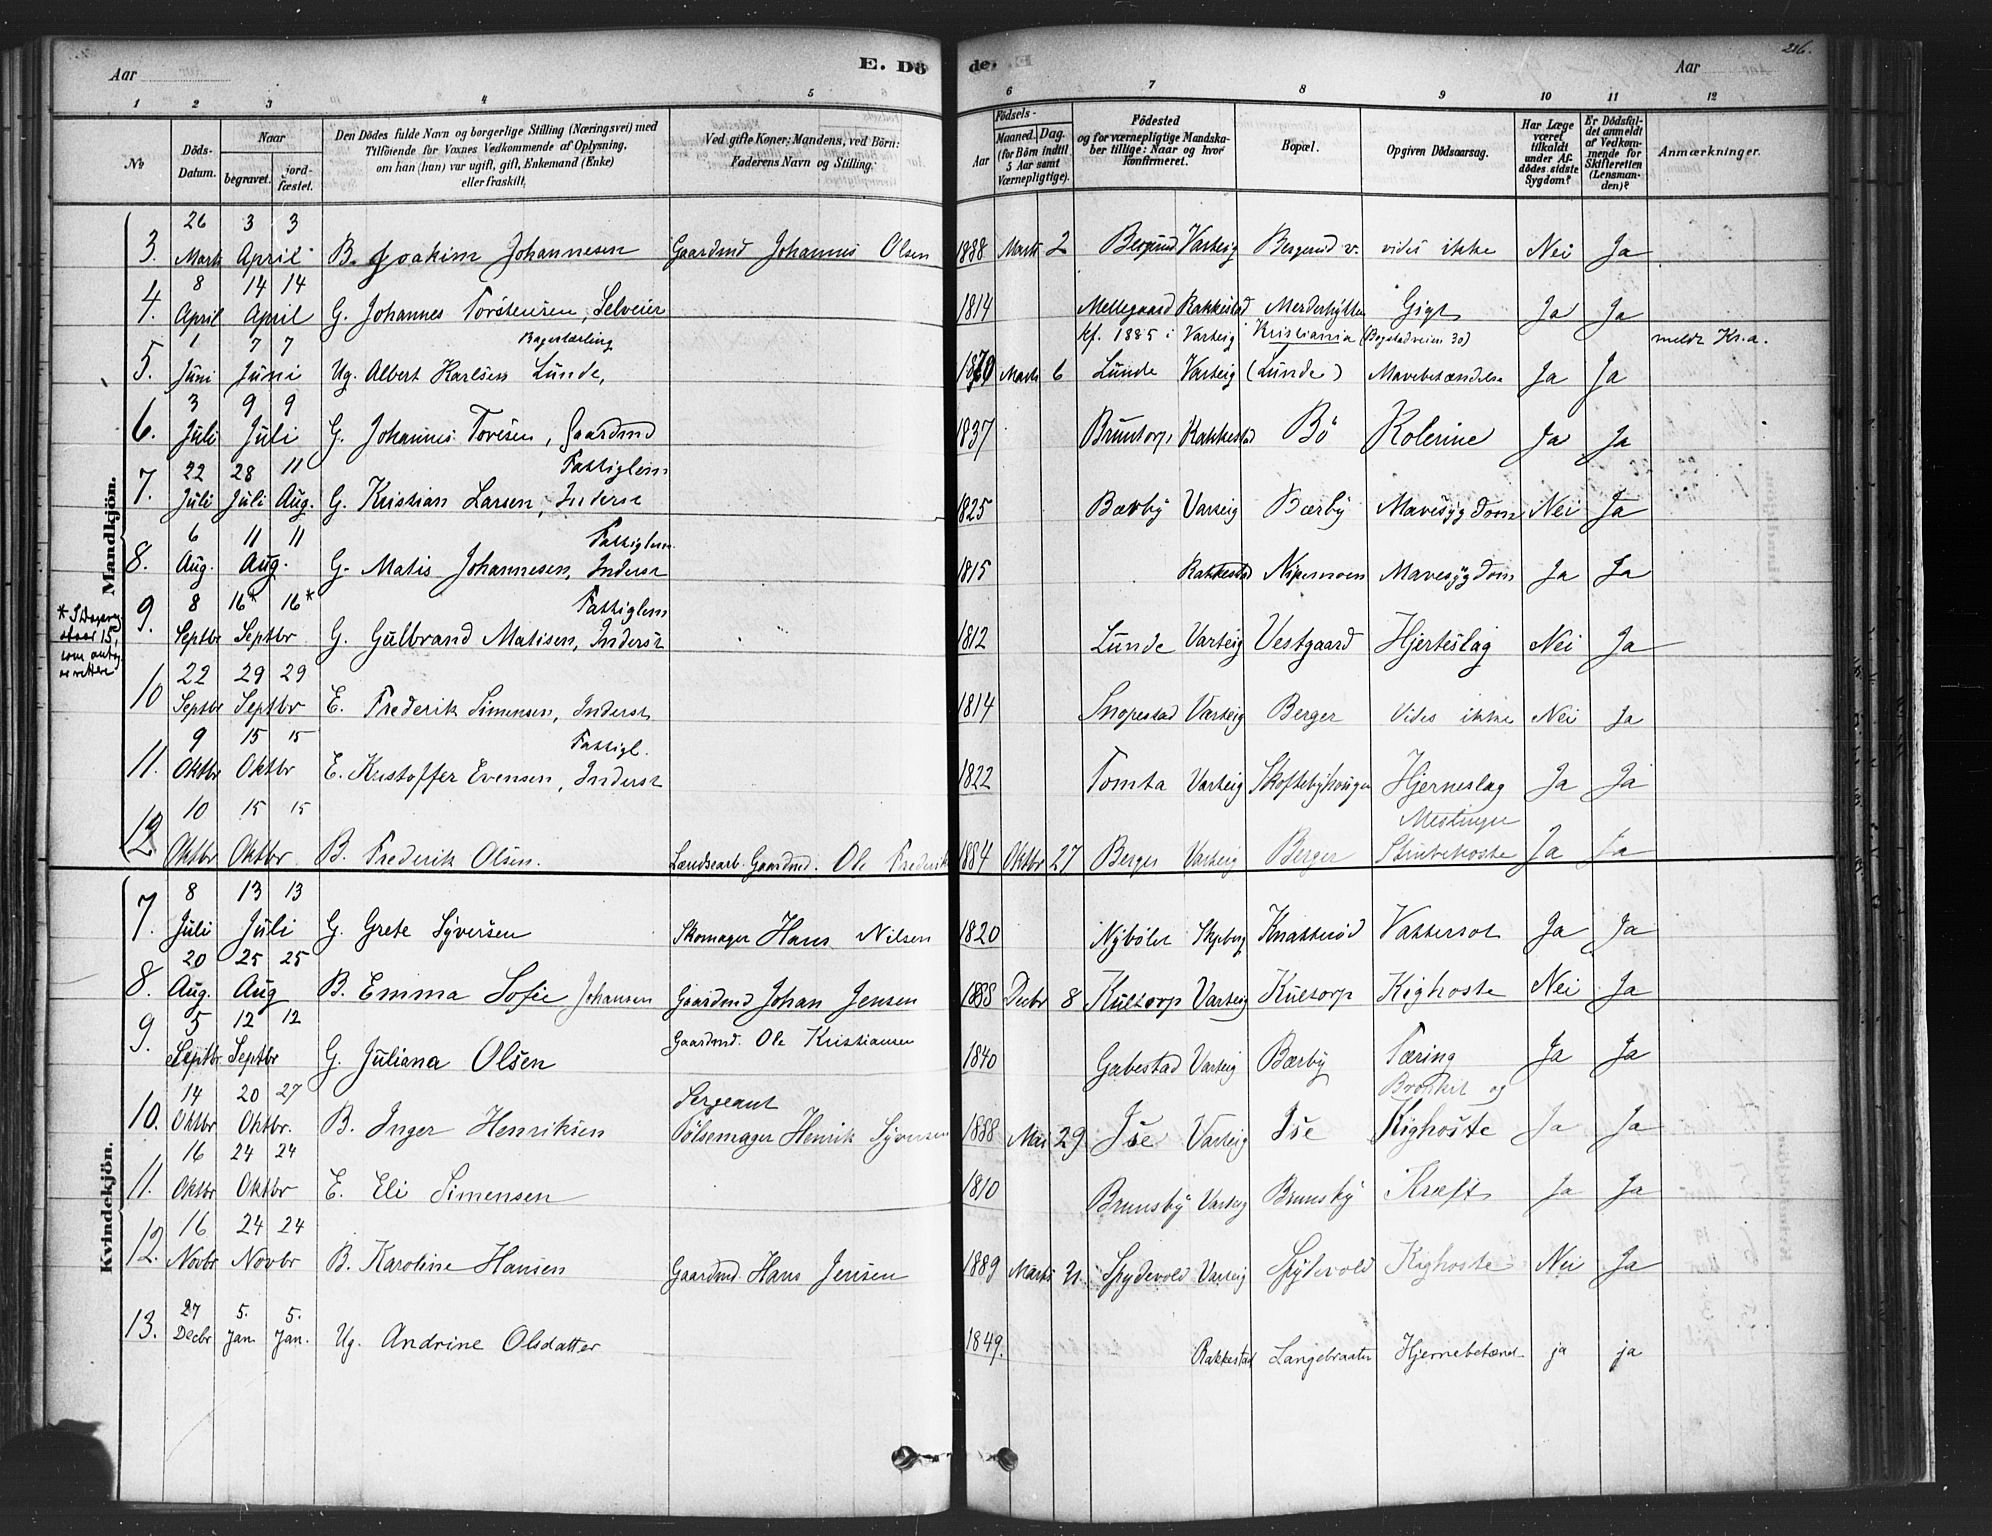 216.
Aar
E. Dö
de.
Aar
1 2 3 4 5 6 7 8 9 10 11 12
No
Döds-Datum.
Naar
begravet.
jordfæstet.
Den Dödes fulde Navn og borgerlige Stilling (Næringsvei) med
Tilföiende for Voxnes Vedkommende af Oplysning,
om han (hun) var ugift, gift, Enkemand (Enke)
eller fraskilt.
Ved gifte Koner: Mandens, ved Börn:
Faderens Navn og Stilling.
Födsels-
Aar
Maaned. Dag.
(for Börn indtil
5 Aar samt
Værnepligtige).
Födested
og for værnepligtige Mandska-
ber tillige: Naar og hvor
Konfirmeret.
Bopæl.
Opgiven Dödsaarsag.
Har Læge
været
tilkaldt
under Af-
dödes sidste
Sygdom?
Er Dödsfal-
det anmeldt
af Vedkom-
mende for
Skifteretten
(Lensman-
den)?
Anmærkninger.
Mandkjön.
26 3 3
3. Marts April B. Joakim Johannesen Gaardmd Johannes Olsen 1888 Marts 2 Bergerud Varteig Bergerud v. vides ikke Nei Ja
8 14 14
4. April April G. Johannes Torstensen, Selveier 1814 Mellegaard Rakkestad Merderhytten Gigt Ja Ja
1 7 7 Bagerlærling kf. 1885 i Varteig Kristiania (Bogstadveien 30) meldt Kr.a.
5. Juni Juni Ug. Albert Karlsen Lunde, 1870 Marts 6 Lunde Varteig (Lunde) Mavebetændelse Ja Ja
3 9 9
6. Juli Juli G. Johannes Toresen, Gaardmd 1837 Bruntorp Rakkestad Bö Kolerine Ja Ja
22 28 11 Fattiglem
7. Juli Juli Aug. G. Kristian Larsen, Inderst 1825 Bærby Varteig Bærby Mavesygdom Nei Ja
6 11 11 Fattiglem
8. Aug. Aug. G. Matis Johannesen, Inderst 1815 Rakkestad Nipemoen Mavesygdom Ja Ja
8 16* 16* Fattiglem
9. Septbr Septbr G. Gulbrand Matisen, Inderst 1812 Lunde Varteig Vestgaard Hjerteslag Nei Ja
* I Dagreg
staar 15,
som antag.
er rettere
22 29 29
10 Septbr Septbr E. Frederik Simensen, Inderst 1814 Snopestad Varteig Berger Vides ikke Nei Ja
9 15 15 Fattigl.
11. Oktbr Oktbr E. Kristoffer Evensen, Inderst 1822 Tomta Varteig Skoftebyhougen Hjerneslag Ja Ja
10 15 15 Meslinger
12 Oktbr Oktbr B. Frederik Olsen. Lændsearb. Gaardmd. Ole Frederik 1884 Oktbr 27 Berger Varteig Berger Strubehoste Ja Ja
Kvindekjön.
8 13 13
7. Juli Juli G. Grete Syversen Skomager Hans Nilsen 1820 Nyböler Skjeberg Knatteröd Vattersot Ja Ja
20 25 25
8. Aug. Aug B. Emma Sofie Johansen Gaardmd Johan Jensen 1888 Decbr 8 Kultorp Varteig Kultorp Kighoste Nei Ja
5 12 12
9. Septbr. Septbr G. Juliana Olsen Gaardmd. Ole Kristiansen 1840 Gabestad Varteig Bærby Tæring Ja Ja
14 20 27 Sergeant Bronkit og
10. Oktbr Oktbr. B. Inger Henriksen Pölsemager Henrik Syversen 1888 Mai 29 Ise Varteig Ise Kighoste Ja Ja
16 24 24
11. Oktbr Oktbr E. Eli Simensen 1810 Brunsby Varteig Brunsby Kræft Ja Ja
16 24 24
12. Novbr Novbr B. Karoline Hansen Gaardmd. Hans Jensen 1889 Marts 21. Spydevold Varteig Spydevold Kighoste Nei Ja
27 5. 5.
13. Decbr Jan. Jan. Ug. Andrine Olsdatter 1849. Rakkestad Langebraaten Hjernebetænd. ja ja